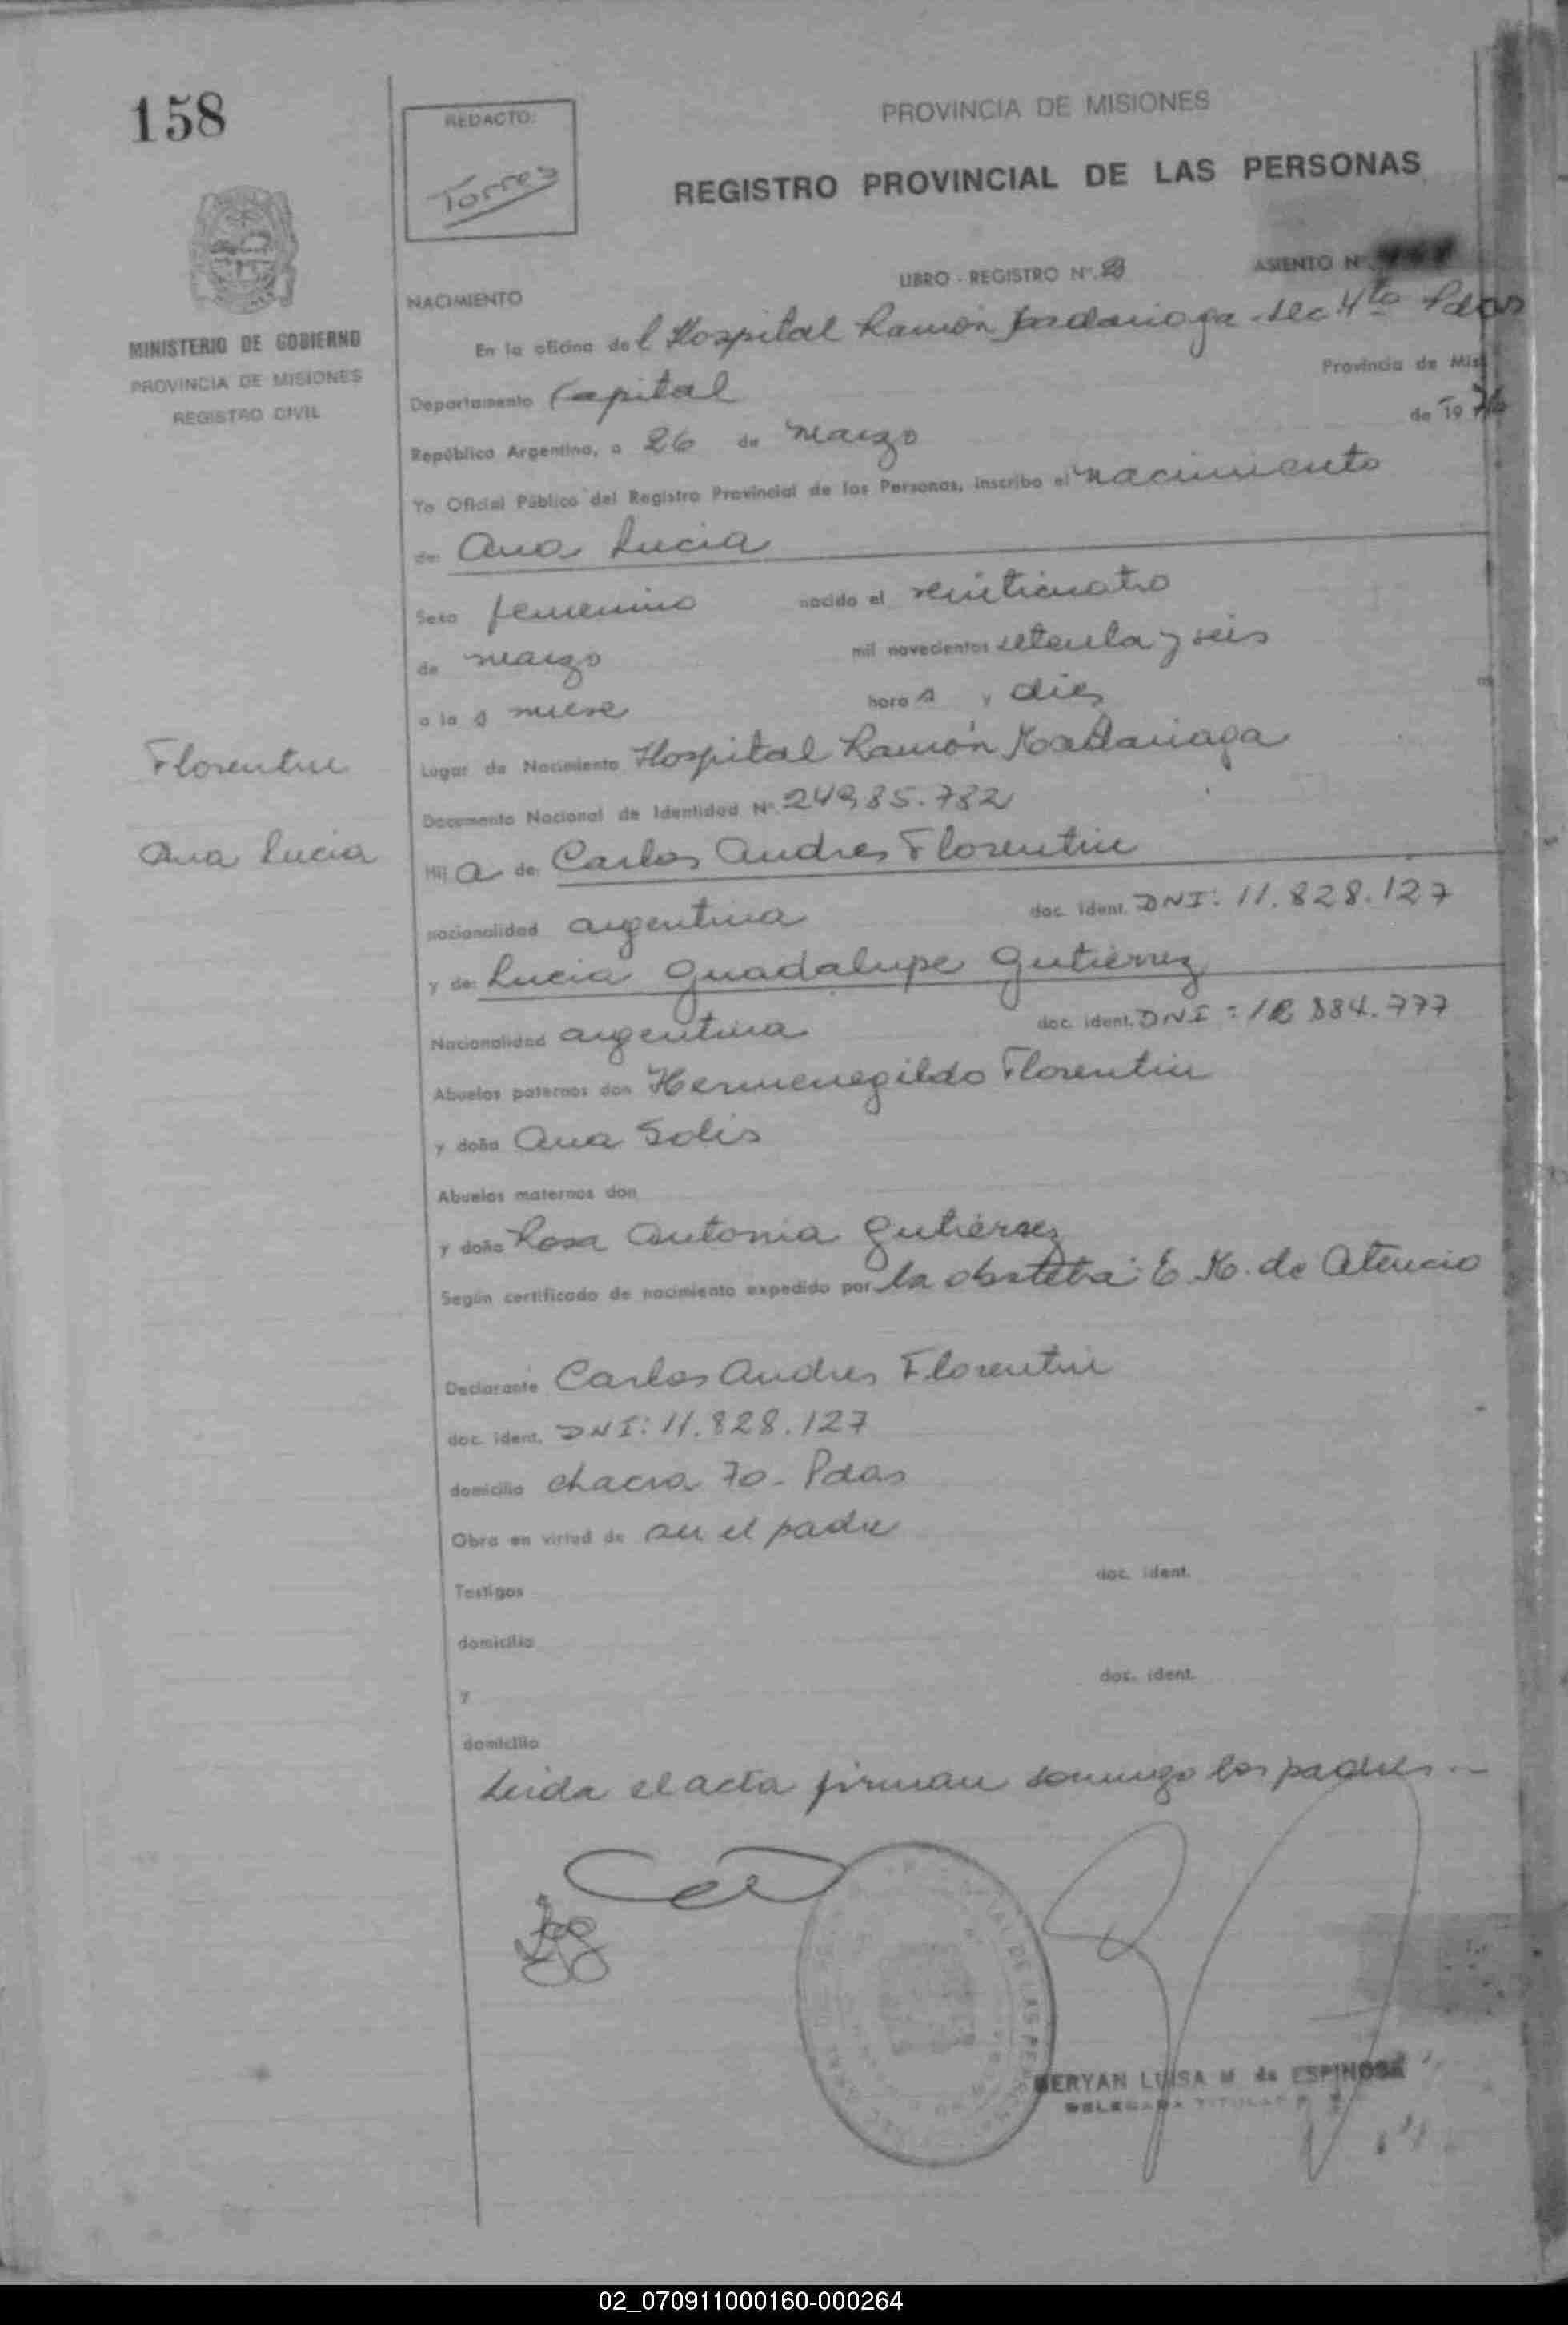 158
REDACTO:
Torres
PROVINCIA DE MISIONES
REGISTRO PROVINCIAL DE LAS PERSONAS
MINISTERIO DE GOBIERNO
PROVINCIA DE MISIONES
REGISTRO CIVIL
LIBRO - REGISTRO Nº.
ASIENTO Nº
NACIMIENTO
En la oficina del Hospital Ramón Madariaga - sec 4ta Pdas
Departamento Capital Provincia de Mis
República Argentina, a 26 de marzo de 1976
Yo Oficial Público del Registro Provincial de las Personas, inscribo el nacimiento
de: Ana Lucia
Sexo femenino nacido el veinticuatro
de marzo mil novecientos setenta y seis
a la s nueve hora s y diez m
Lugar de Nacimiento Hospital Ramón Madariaga
Documento Nacional de Identidad Nº. 24985.782
Florentin
Ana Lucia
Hij a de: Carlos Andres Florentin
nacionalidad argentina doc. ident. DNI: 11.828.127
y de: Lucia Guadalupe Gutiérrez
Nacionalidad argentina doc. ident. DNI: 884.777
Abuelos paternos don Hermenegildo Florentin
y doña Ana Solis
Abuelos maternos don
y doña Rosa Antonia Gutiérrez
Según certificado de nacimiento expedido por la obstetra: E. M. de Atencio
Declarante Carlos Andres Florentin
doc. ident. DNI: 11.828.127
domicilio chacra 70 - Pdas
Obra en virtud de ser el padre
Testigos doc. ident.
domicilio
y doc. ident.
domicilio
Leida el acta firman conmigo los padres.-
DE LAS PERSONAS
MERYAN LUISA M de ESPINOSA
DELEGADA TITULAR
02_070911000160-000264